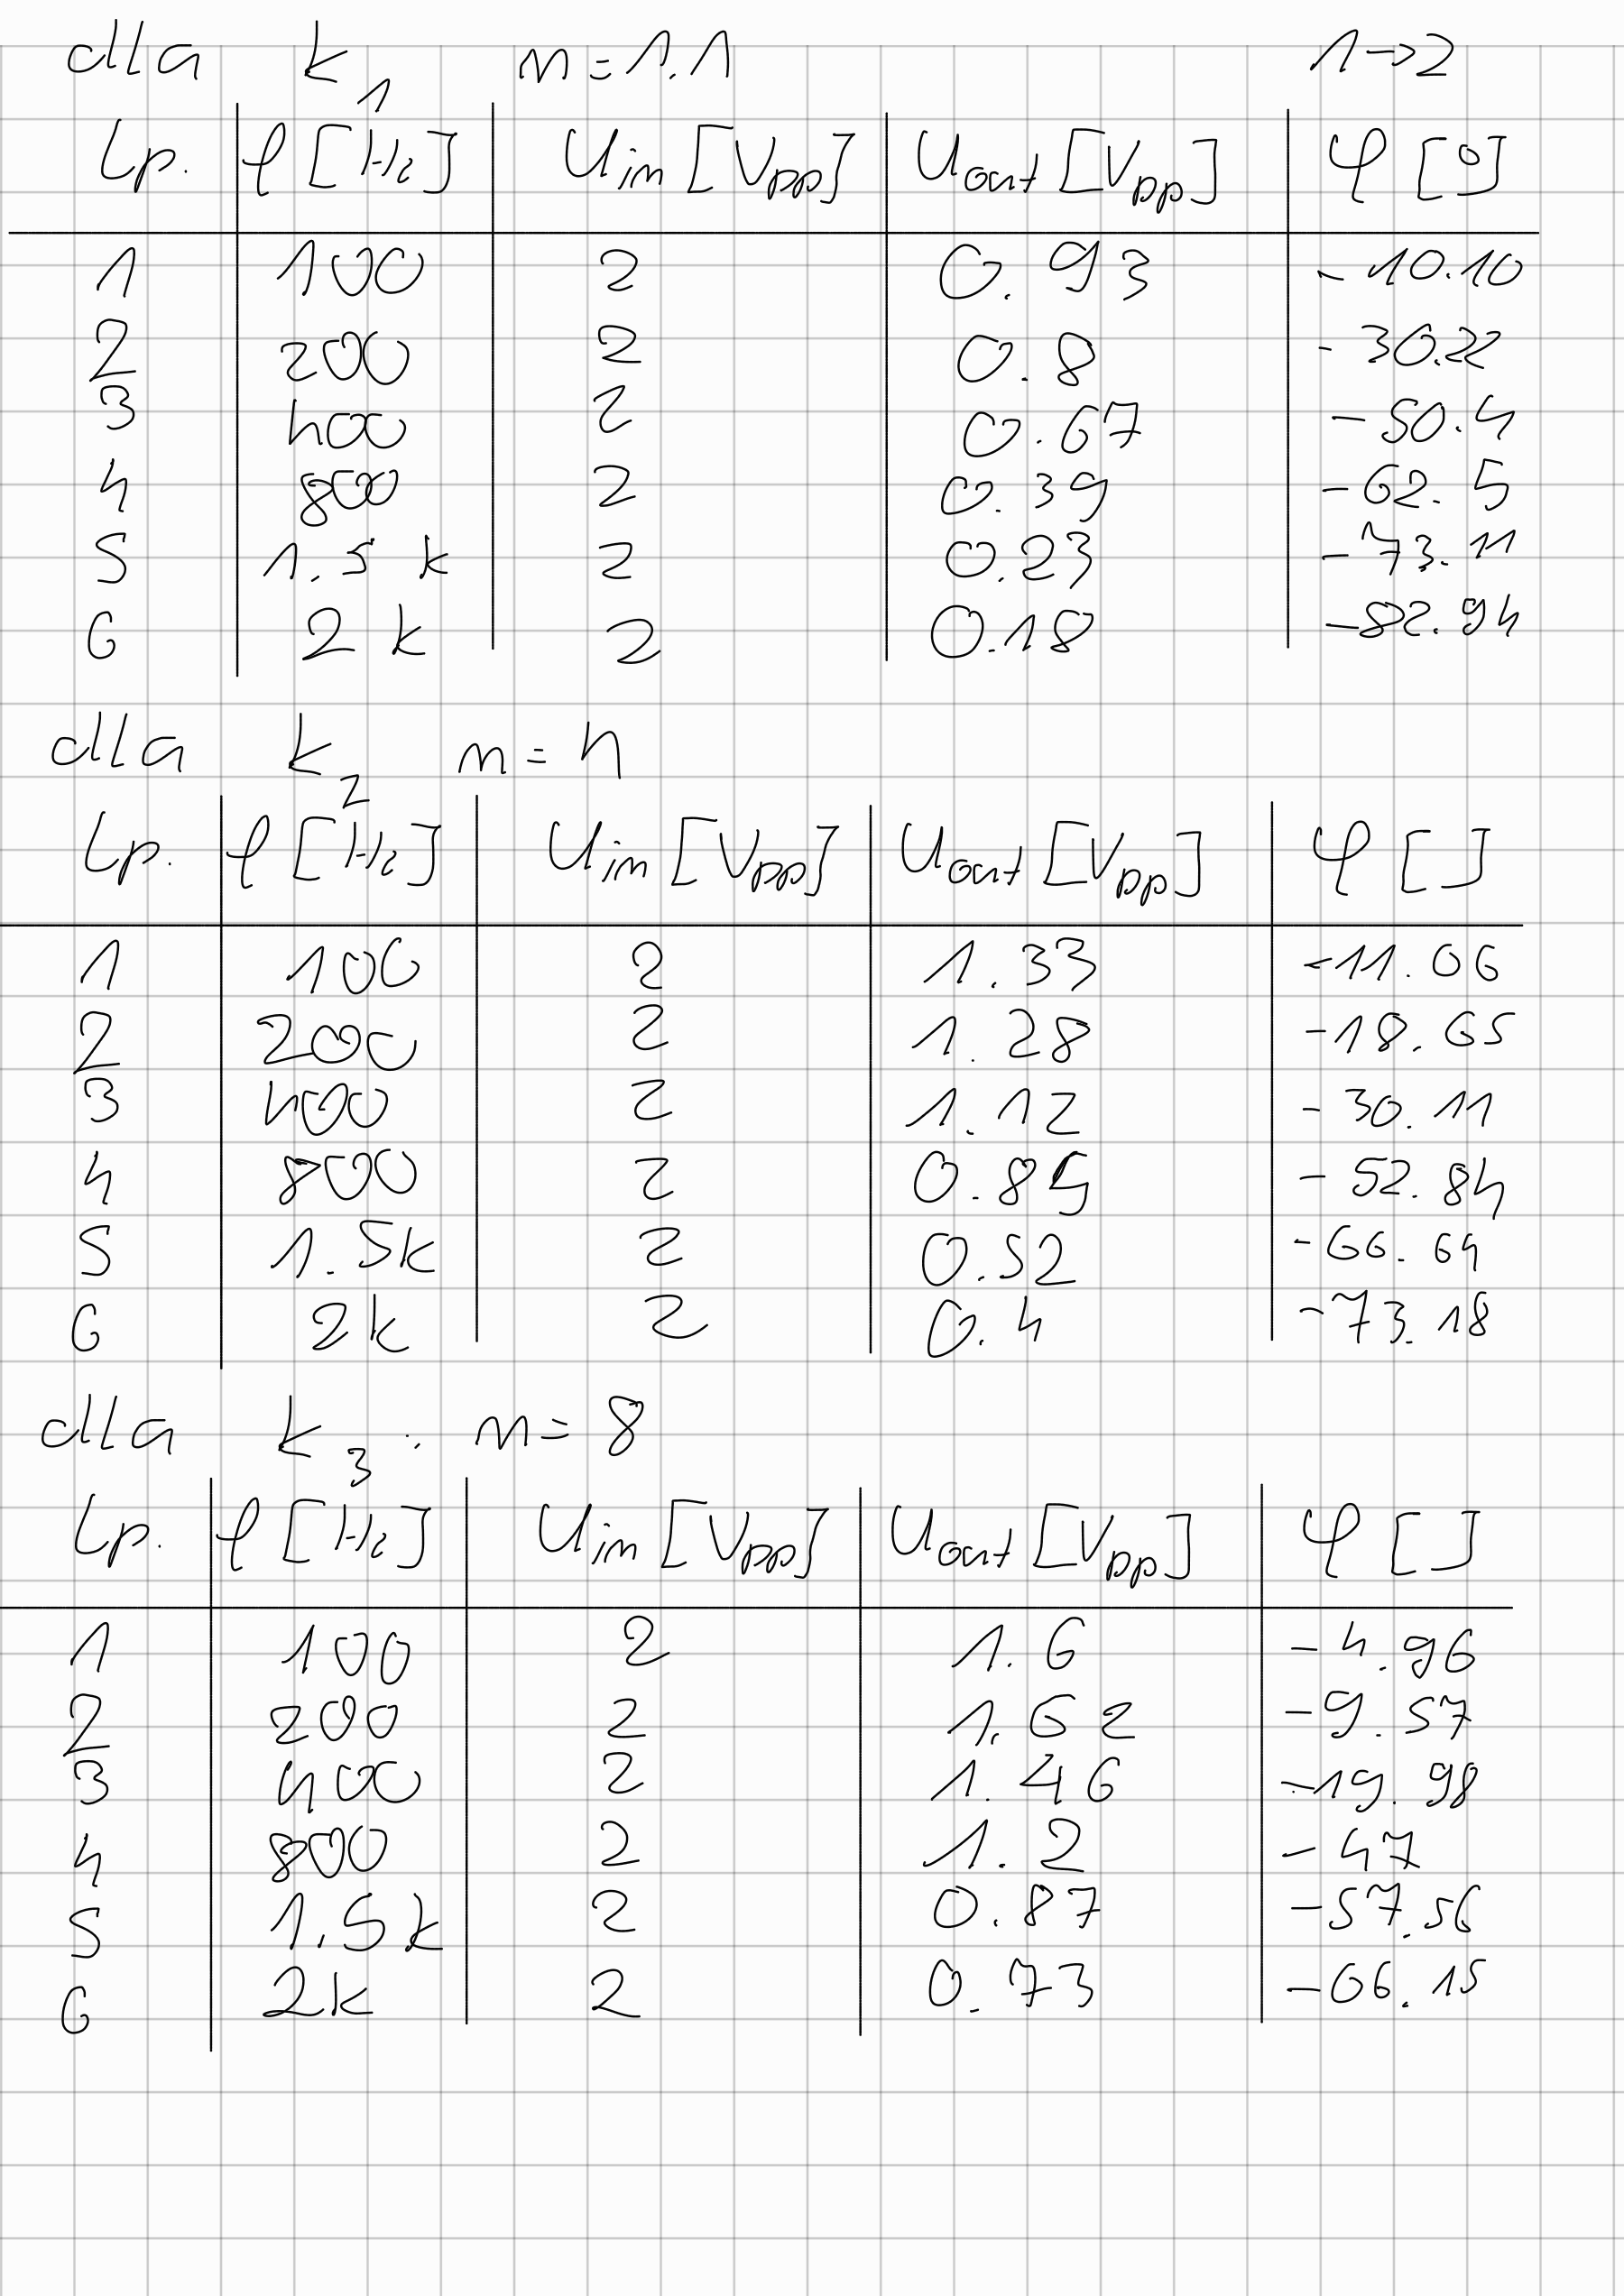 dla k₁ n=1.1 1→2
Lp. f [Hz] Uin [Vpp] Uout [Vpp] φ [°]
1 100 2 0.93 -10.10
2 200 2 0.8 -30.22
3 400 2 0.67 -50.4
4 800 2 0.39 -62.5
5 1.5 k 2 0.23 -73.11
6 2 k 2 0.18 -82.94
dla k₂ n=4
Lp. f [Hz] Uin [Vpp] Uout [Vpp] φ []
1 100 2 1.33 -11.06
2 200 2 1.28 -18.65
3 400 2 1.12 -30.11
4 800 2 -52.84
5 1.5k 2 0.52 -66.64
6 2k 2 0.4 -73.18
dla k₃: n=8
Lp. f [Hz] Uin [Vpp] Uout [Vpp] φ []
1 100 2 1.6 -4.96
2 200 2 1.62 -9.57
3 400 2 1.46 -19.98
4 800 2 1.2 -47
5 1.5 k 2 0.87 -57.56
6 2k 2 0.73 -66.15